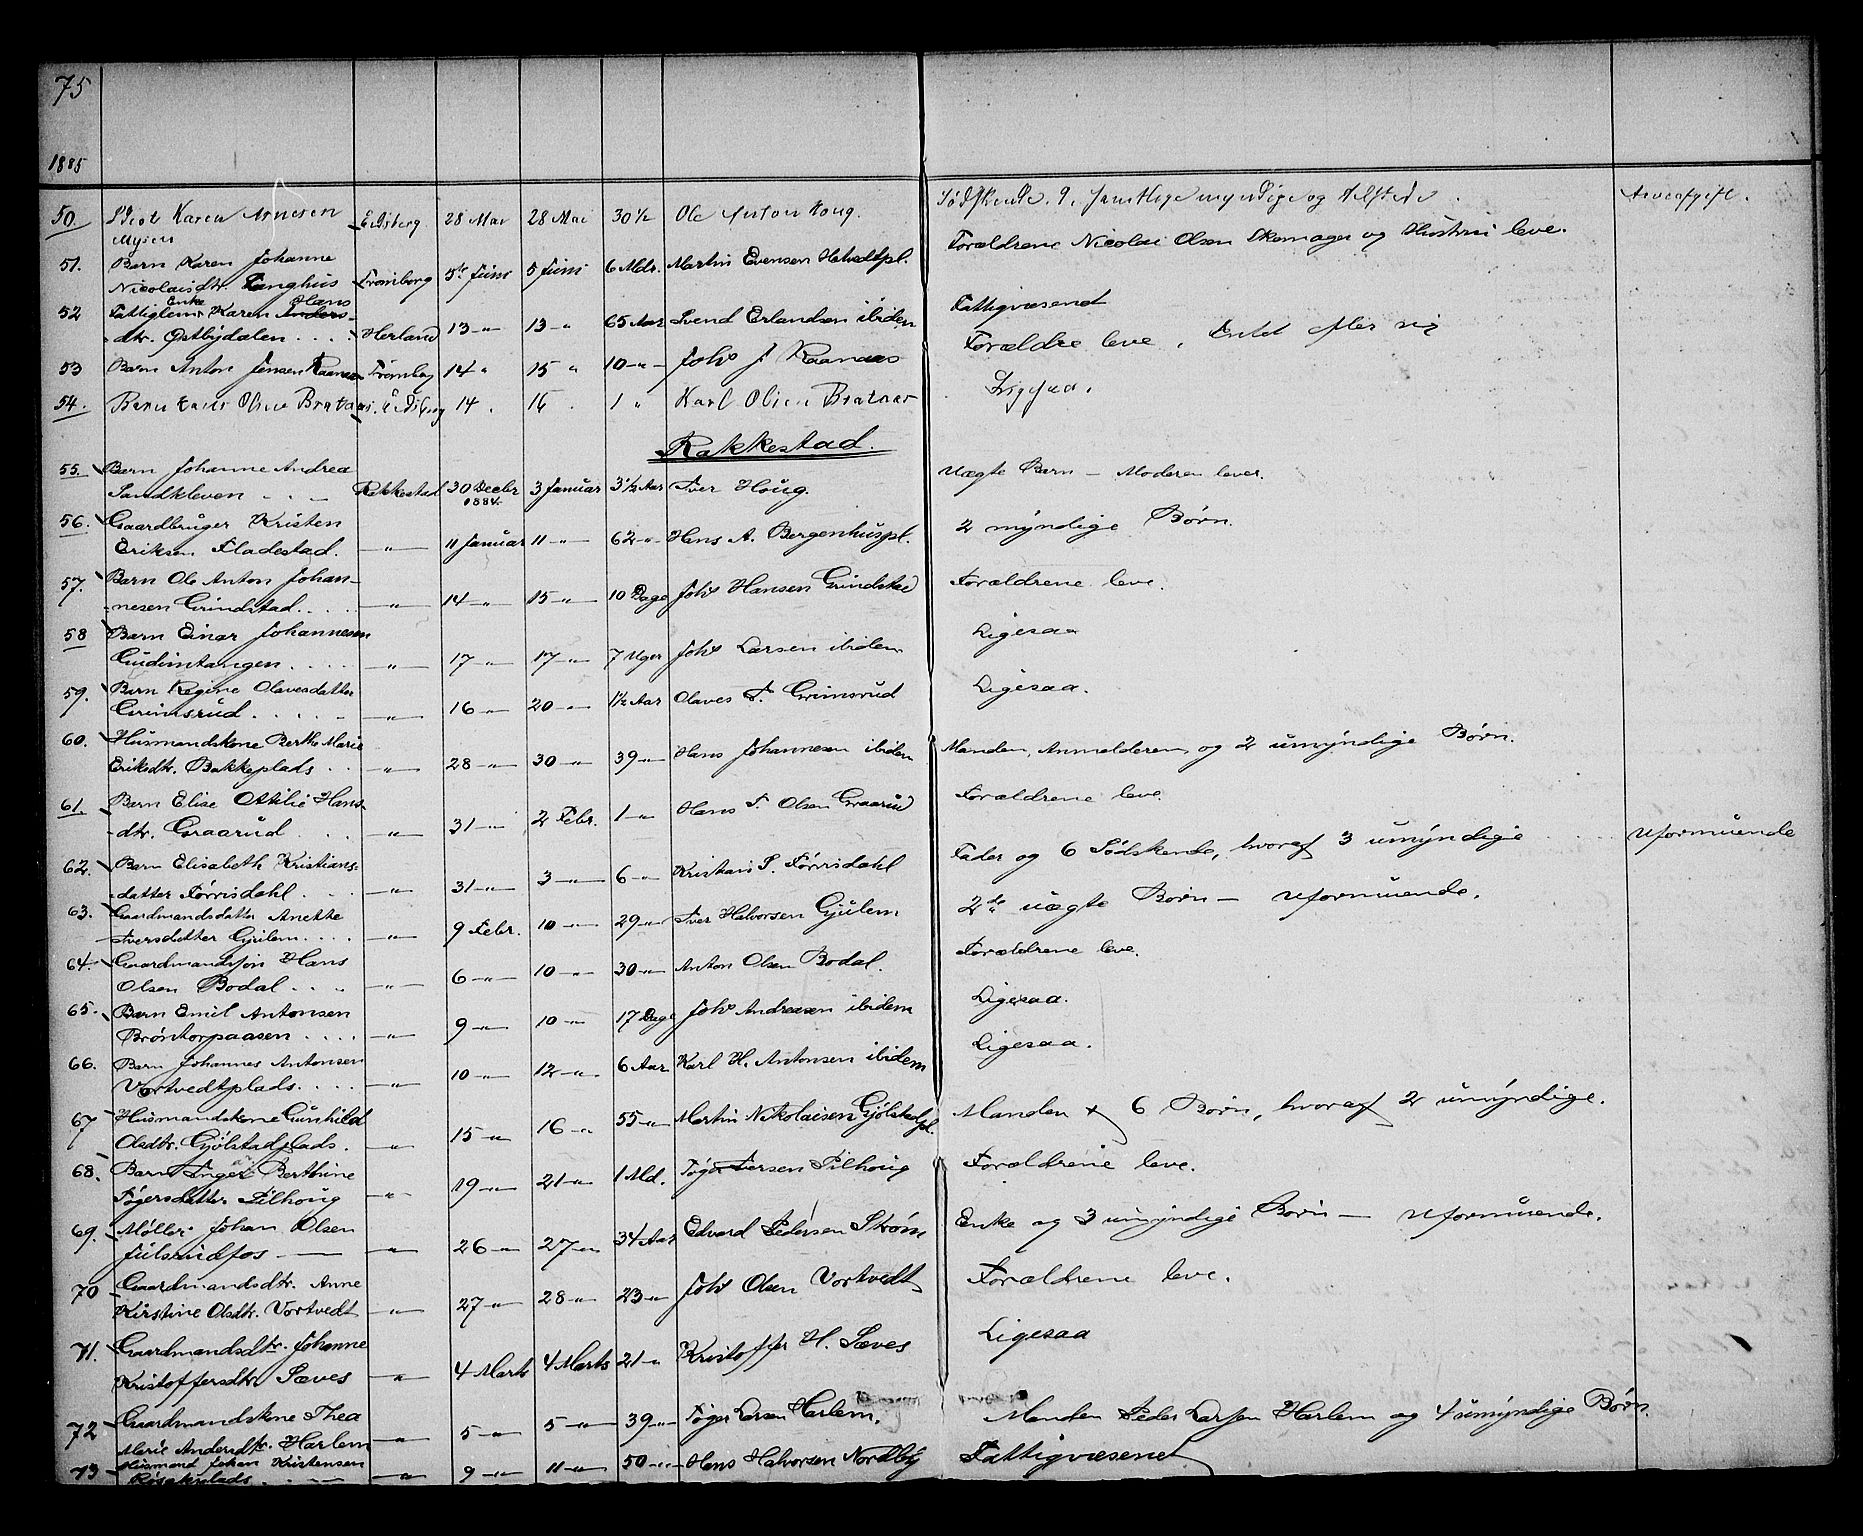 75
1885
50. Idiot Karen Arnesen Eidsberg 28 Mai 28 Mai 30 1/2 Ole Anton Houg. Sødskende 9, samtlige myndige og tilstede. Arveafgift.
Mysen
51. Barn Karen Johanne Forældrene Nicolai Olsen Skomager og Hustrui leve.
Nicolaisdtr. Langhus Trømborg 5te Juni 5 Juni 6 Mdr. Martin Evensen Hetvedtpl.
52 Fattiglem Enke Karen Hans- Fattigvæsend
dtr. Østbydalen . . . Herland 13 -"- 13 -"- 65 Aar Svend Erlandsen ibiden
53 Barn Anton Jensen Raanaas Trømborg 14 " 15 " 10 -"- Johs J Raanaas Forældre leve, Intet efter sig
54. Barn Olsen Brataas Eidsberg 14 . 16 . 1 " Karl Olsen Brataas Ligesaa.
Rakkestad.
55. Barn Johanne Andrea Uægte Barn — Moderen lever.
Sandkleven . . — Rakkestad 30 Decbr 1884. 3 Januar 3 1/2 Aar Iver Houg.
56. Gaardbruger Kristen 2 myndige Børn.
Eriksen Fladestad. —"— 11 Januar 11 -"- 62 -"- Hans A. Bergenhuspl.
57. Barn Ole Anton Johan- Forældrene leve.
nesen Grindstad. . . . —"— 14 -"- 15 -"- 10 Dage Johs Hansen Grindstad
58 Barn Einar Johannesen Ligesaa
Gudimtangen. . . . —"— 17 -"- 17 -"- 7 Uger Johs Larsen ibidem
59. Barn Regine Olavesdatter Ligesaa.
Grimsrud. . . . . —"— 16 -"- 20 -"- 1 1/2 Aar Olaves T. Grimsrud
60. Husmandskone Berthe Marie Manden, Anmelderen, og 2 umyndige Børn.
Eriksdtr. Bakkeplads . . —"— 28 -"- 30 -"- 39 -"- Hans Johannesen ibidem
61. Barn Elise Ottilie Hans- Forældrene leve.
dtr. Graarud . . . —"— 31 -"- 2 Febr. 1 -"- Hans T. Olsen Graarud
62. Barn Elisabeth Kristians- Fader og 6 Sødskende, hvoraf 3 umyndige . . . Uformuende
datter Tørrisdahl . . . —"— 31 -"- 3 -"- 6 -"- Kristian P. Tørrisdahl
63. Gaardmandsdatter Anette 2de uægte Børn — Uformuende.
Iversdatter Gjulem. . . . —"— 9 Febr. 10 -"- 29 -"- Iver Halvorsen Gjulem
64. Gaardmandssøn Hans Forældrene leve.
Olsen Bodal . . . —"— 6 -"- 10 -"- 30 -"- Anton Olsen Bodal.
65. Barn Emil Antonsen Ligesaa.
Brøntorpaasen . . . . —"— 9 -"- 10 -"- 17 Dage Johs Andreasen ibidem
66. Barn Johannes Antonsen Ligesaa.
Vortvedtplads. . . . —"— 10 -"- 12 -"- 6 Aar Karl H. Antonsen ibidem
67 Husmandskone Gunhild Manden + 6 Børn, hvoraf 2 umyndige.
Olsdtr. Gjølstadplads. —"— 15 -"- 16 -"- 55 -"- Martin Nikolaisen Gjølstadpl.
68. Barn Inger Berthine Forældrene leve.
Tøgersdatter Pilhoug —"— 19 -"- 21 -"- 1 Md. Tøger Iversen Pilhoug
69. Møller Johan Olsen Enke og 3 umyndige Børn — Uformuende.
Julsrudfos — —"— 26 -"- 27 -"- 34 Aar Edvard Pedersen Strøm
70 Gaardmandsdtr. Anne Forældrene leve.
Kirstine Olsdtr. Vortvedt —"— 27 -"- 28 -"- 23 -"- Johs Olsen Vortvedt
71. Gaardmandsdtr. Johanne Ligesaa
Kristoffersdtr. Sæves —"— 4 Marts 4 Marts 21 -"- Kristoffer H. Sæves
72 Gaardmandskone Thea Manden Peder Larsen Harlem og 4 umyndige Børn.
Marie Andersdtr. Harlem —"— 5 -"- 5 -"- 39 -"- Tøger Larsen Harlem.
73 Husmand Johan Kristensen Fattigvæsenet
—"— 9 -"- 11 -"- 50 -"- Hans Halvorsen Nordby